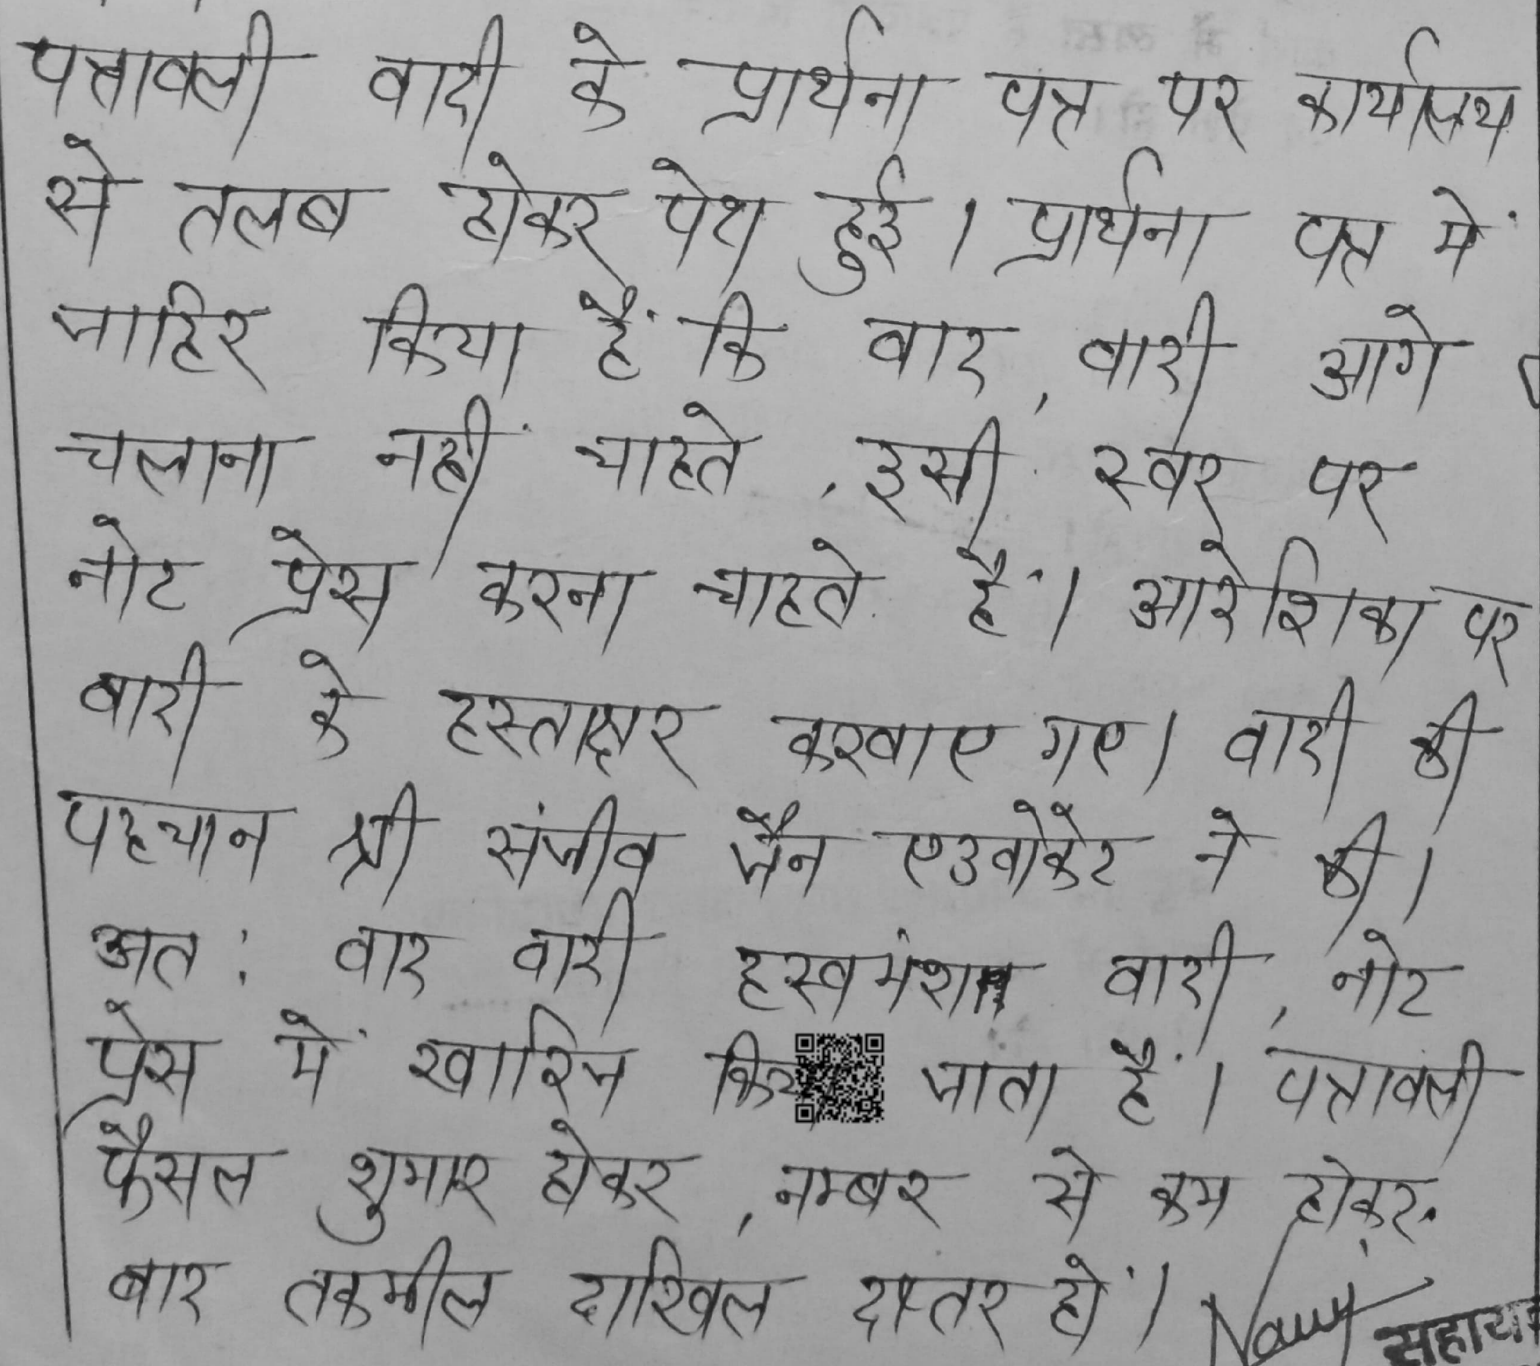 पत्रावली वादी के प्रार्थना पत्र पर कार्यालय
से तलब होकर पेश हुई। प्रार्थना पत्र में
जाहिर किया है कि वाद, वादी आगे
चलाना नहीं चाहते, इसी स्तर पर
नोट प्रेस करना चाहते हैं। आदेशिका पर
वादी के हस्ताक्षर करवाए गए। वादी की
पहचान श्री संजीव जैन एडवोकेट ने की।
अत: वाद वादी हस्वमंशा वादी, नोट
प्रेस में खारिज जाता है। पत्रावली
फैसल शुमार होकर, नम्बर से कम होकर
बाद तकमील दाखिल दफ्तर हो।